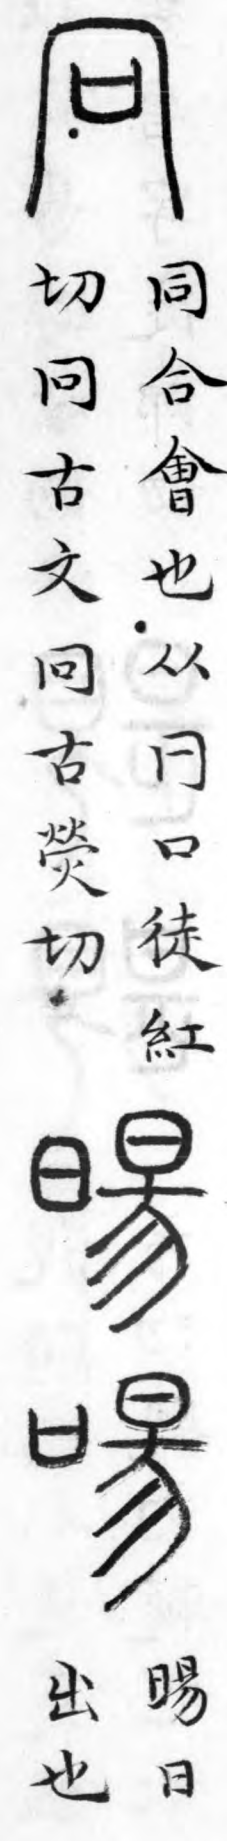 冋
同合會也从冃口徒紅
切冋古文冋古熒切
暘㖡
暘日
出也